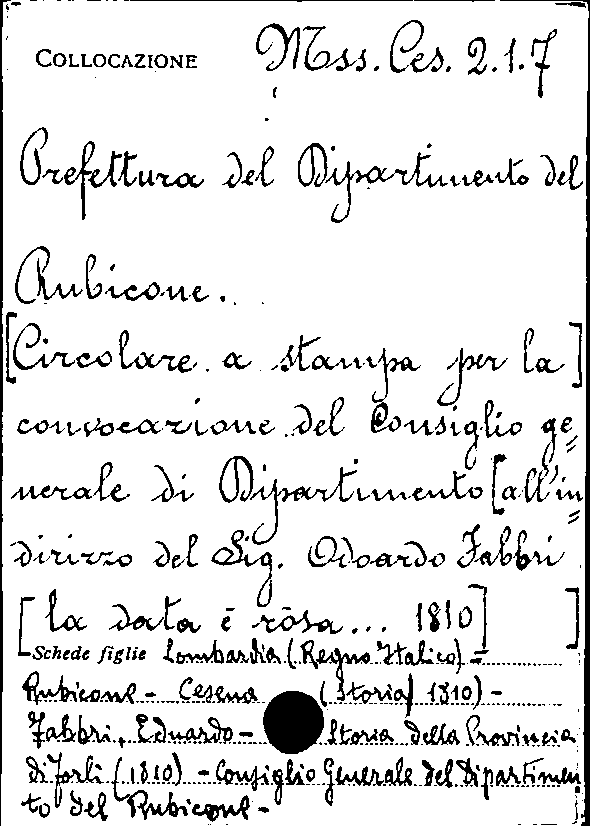 COLLOCAZIONE Mss. Ces. 2.1.7
Prefettura del Dipartimento del
Rubicone.
[Circolare a stampa per la]
convocazione del Consiglio ge=
nerale di Dipartimento [all'in=
dirizzo del Sig. Odoardo Fabbri
[la data è rôsa... 1810] ]
Schede figlie Lombardia (Regno Italico) -
Rubicone - Cesena (Storia/ 1810) -
Fabbri, Eduardo - Storia della Provincia
di Forlì (1810) - Consiglio Generale del Dipartimen
to del Rubicone -